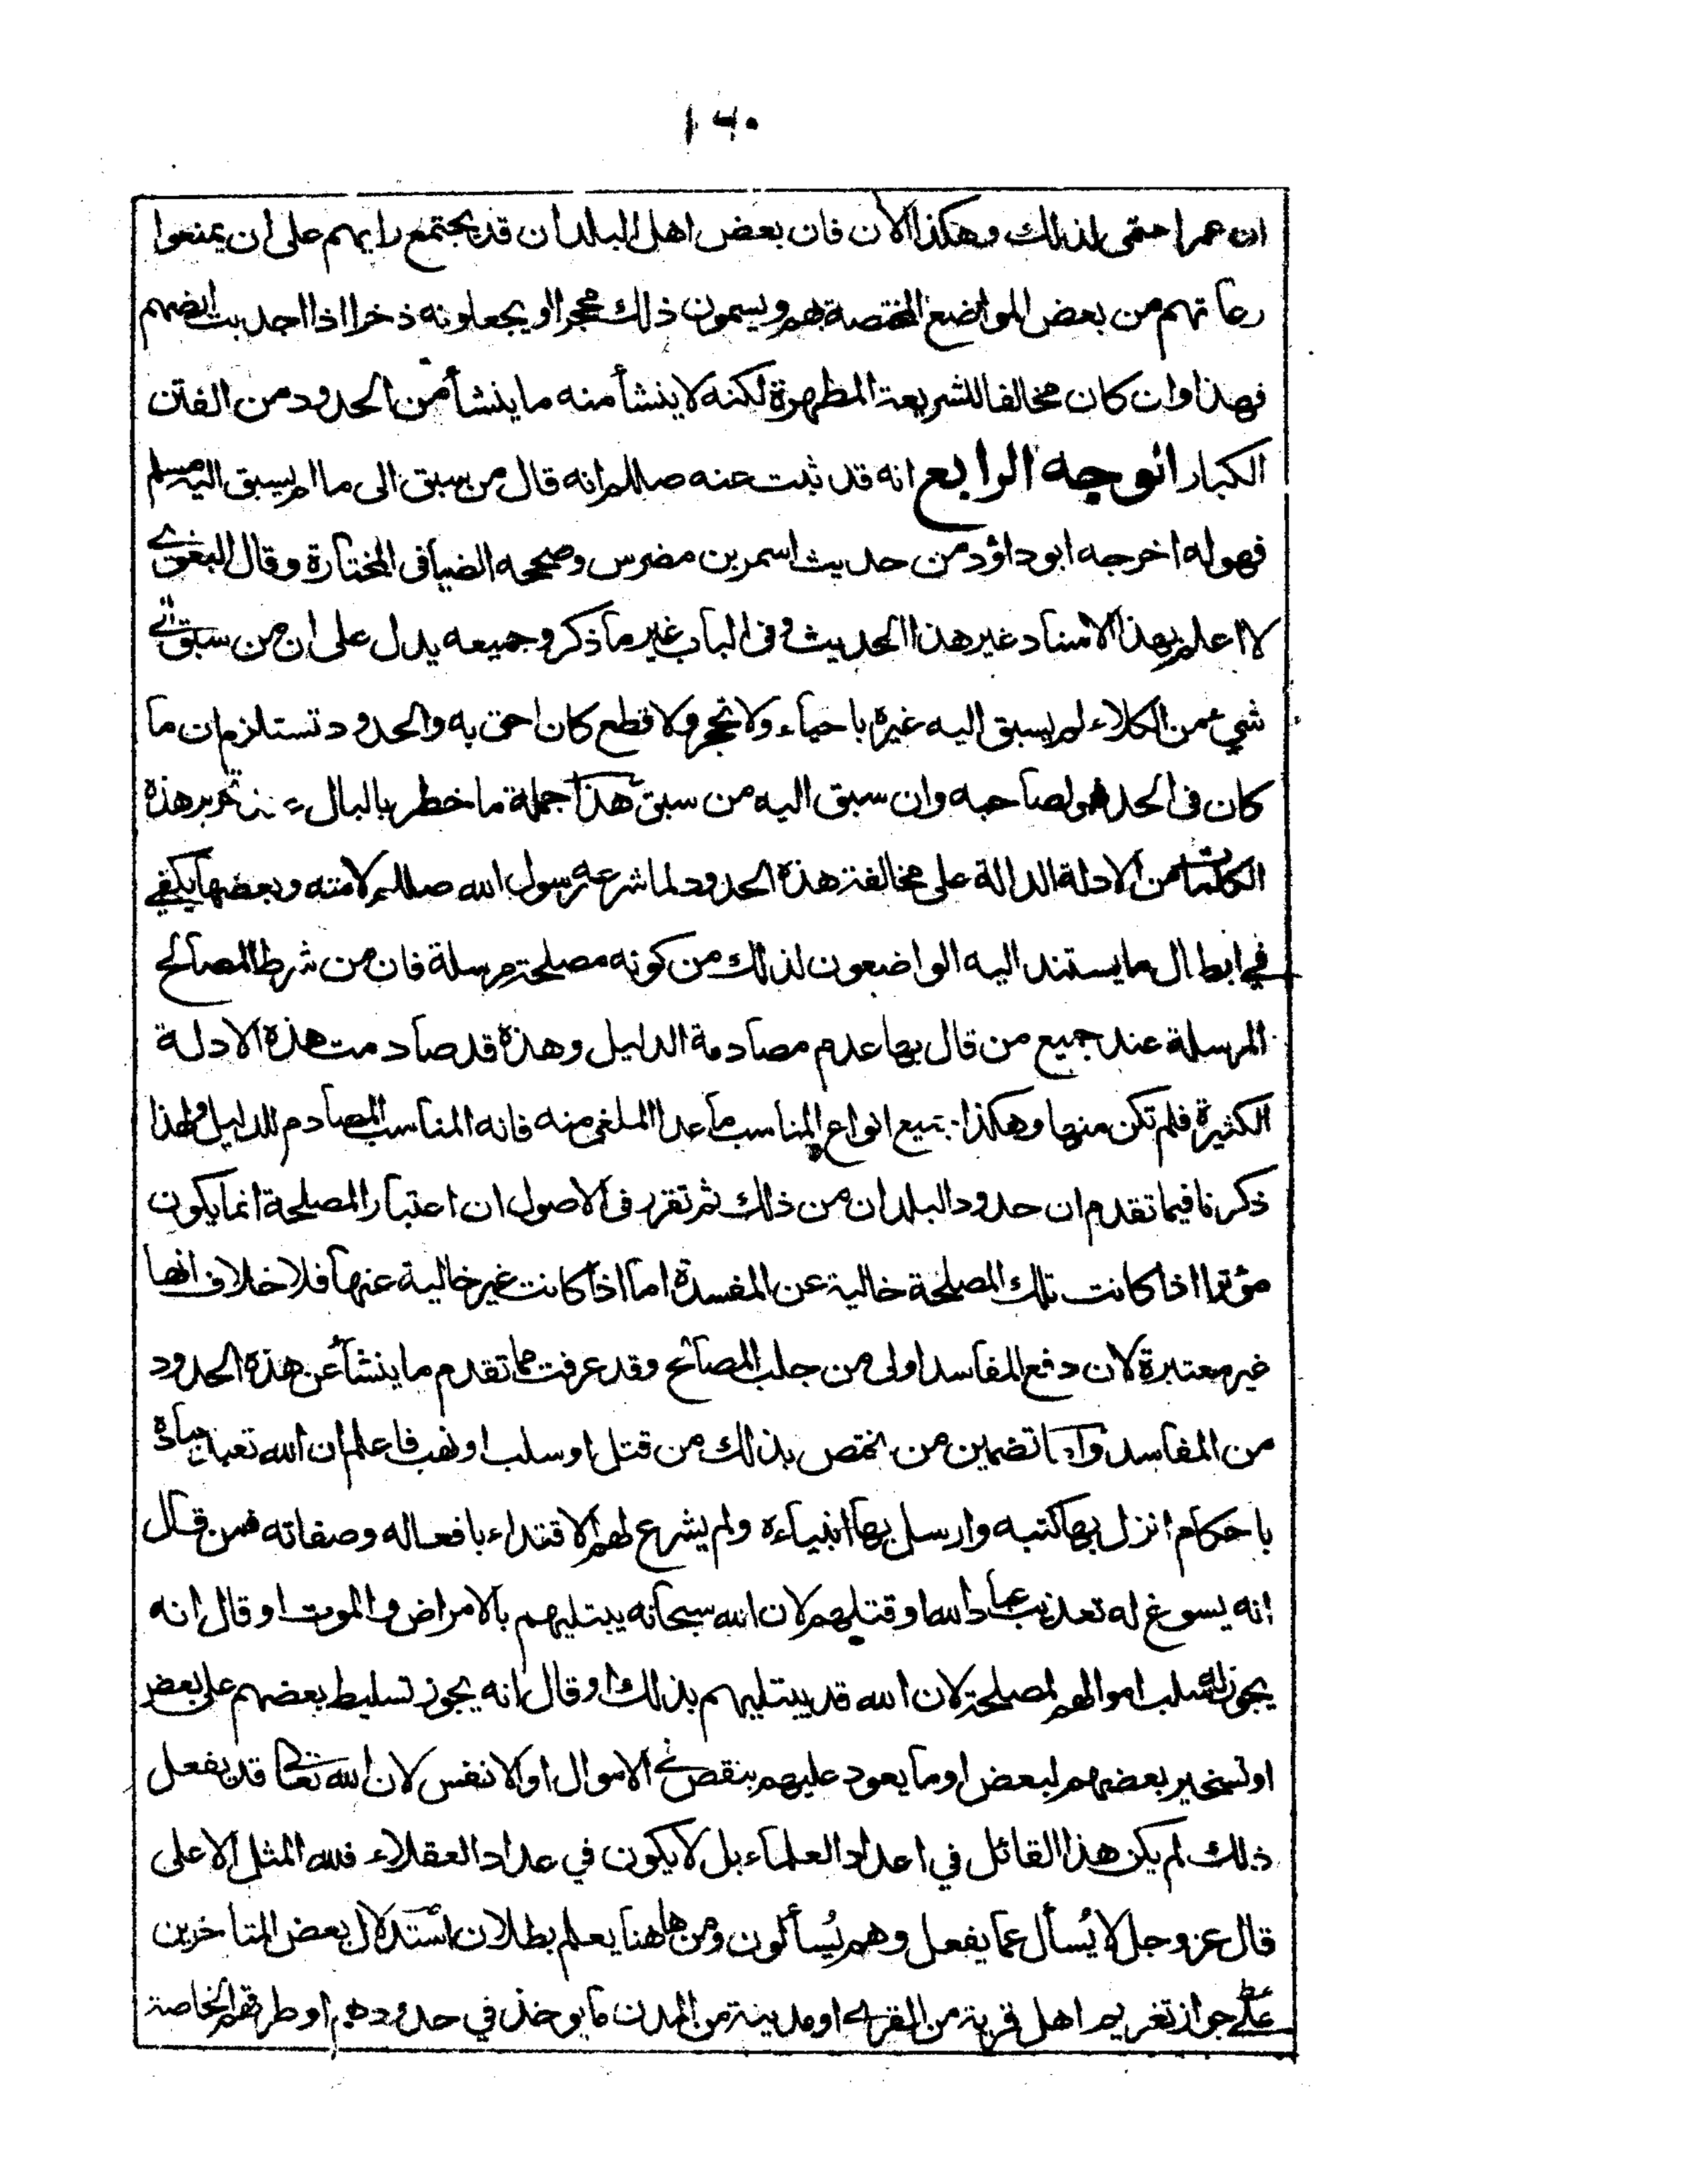 ١٦٠
ان عمر احتمى لذلك وهكذا الآن فان بعض اهل البلدان قد يجتمع رايهم على ان يمنعوا
رعاتهم من بعض المواضع المختصة بهم ويسمون ذلك محجرا او يجعلونه ذخرا اذا اجدبت ارضهم
فهذا وان كان مخالفا للشريعة المطهرة لكنه لا ينشأ منه ما ينشأ من الحدود من الفتن
الكبار الوجه الرابع انه قد ثبت عنه صللم انه قال من سبق الى ما لم يسبق اليه مسلم
فهو له اخرجه ابو داؤد من حديث اسمر بن مضرس وصححه الضيا في المختارة وقال البغوي
لا اعلم بهذا الاسناد غير هذا الحديث وفي الباب غير ما ذكر وجميعه يدل على ان من سبق الى
شيء من الكلاء لم يسبق اليه غيره باحياء ولا تحجر ولا قطع كان احق به والحدود تستلزم ان ما
كان في الحد فهو لصاحبه وان سبق اليه من سبق هذا جملة ما خطر بالبال عند تحرير هذه
الكلمات من الادلة الدالة على مخالفة هذه الحدود لما شرعه رسول الله صللم لامته وبعضها يكفي
في ابطال ما يستند اليه الواضعون لذلك من كونه مصلحة مرسلة فان من شرط المصالح
المرسلة عند جميع من قال بها عدم مصادمة الدليل وهذه قد صادمت هذه الادلة
الكثيرة فلم تكن منها وهكذا جميع انواع المناسب ما عدا الملغى منه فانه المناسب المصادم للدليل ولهذا
ذكرنا فيما تقدم ان حدود البلدان من ذلك ثم تقرر في الاصول ان اعتبار المصلحة انما يكون
مؤثرا اذا كانت تلك المصلحة خالية عن المفسدة اما اذا كانت غير خالية عنها فلا خلاف انها
غير معتبرة لان دفع المفاسد اولى من جلب المصالح وقد عرفت مما تقدم ما ينشأ عن هذه الحدود
من المفاسد واما تضمين من يختص بذلك من قتل او سلب او نهب فاعلم ان الله تعبد عباده
باحكام انزل بها كتبه وارسل بها انبياءه ولم يشرع لهم الاقتداء بافعاله وصفاته فمن قال
انه يسوغ له تعذيب عباد الله او قتلهم لان الله سبحانه يبتليهم بالامراض والموت او قال انه
يجوز له سلب اموالهم لمصلحة لان الله قد يبتليهم بذلك او قال انه يجوز تسليط بعضهم على بعض
او تسخير بعضهم لبعض او ما يعود عليهم بنقص في الاموال او الانفس لان الله تعالى قد يفعل
ذلك لم يكن هذا القائل في اعداد العلماء بل لا يكون في عداد العقلاء فلله المثل الاعلى
قال عز وجل لا يُسأل عما يفعل وهم يُسألون ومن هاهنا يعلم بطلان استدلال بعض المتاخرين
على جواز تغريم اهل قرية من القرى او مدينة من المدن ما يوخذ في حدودهم او طرقهم الخاصة